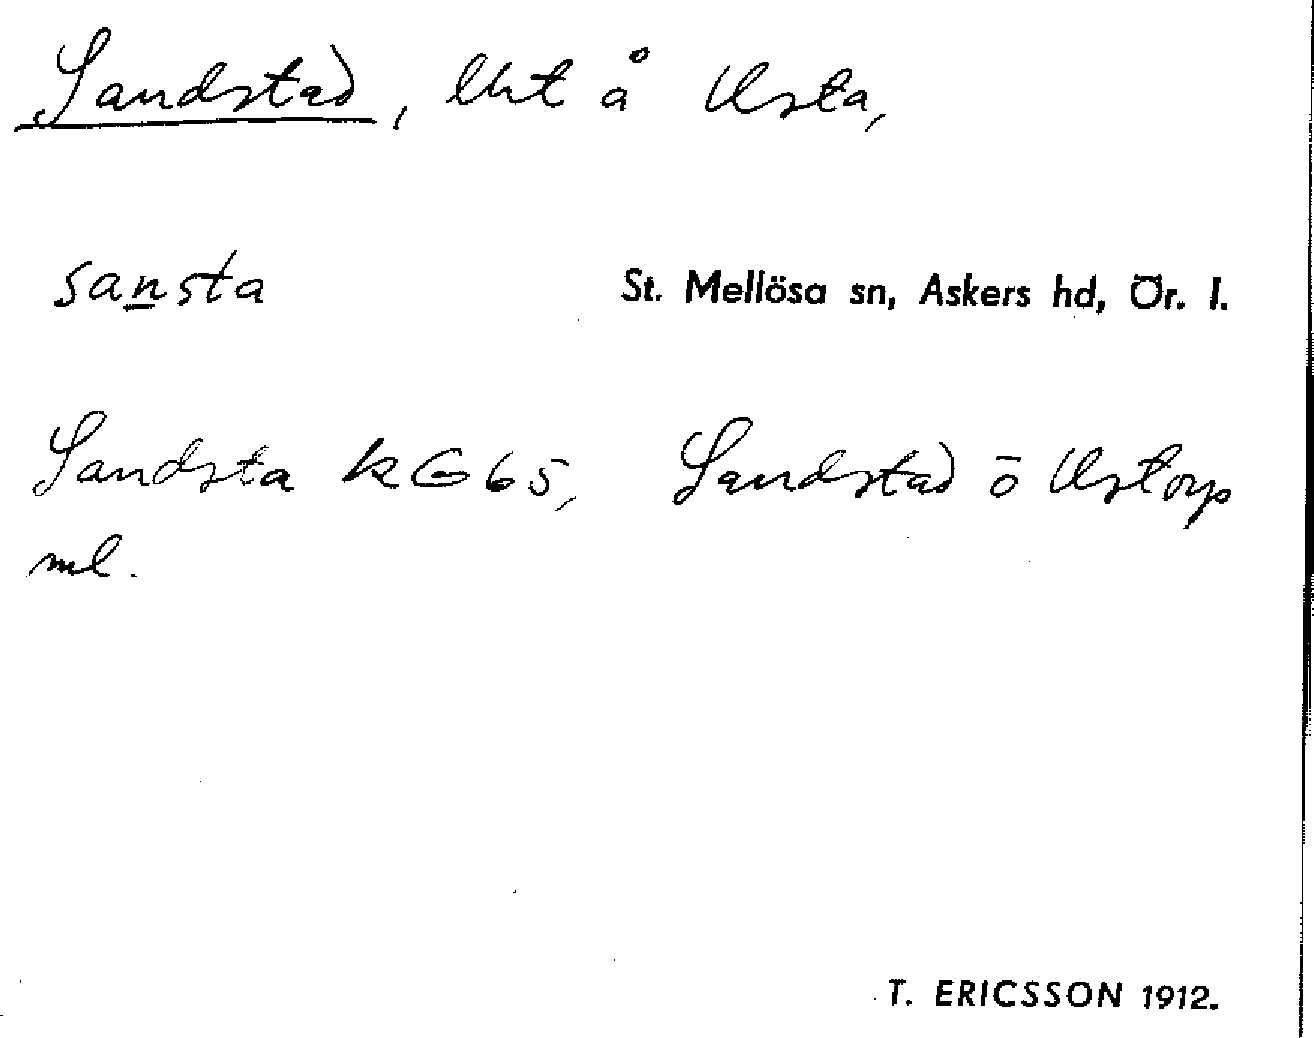 Sandstad, lht å Usta,
sansta St. Mellösa sn, Askers hd, Ör. l.
Sandsta KG65, Sandstad ö Ustorp
ml.
T. ERICSSON 1912.